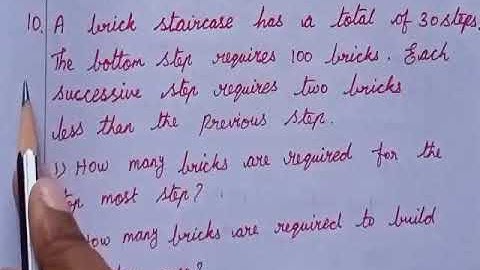 10. A brick staircase has a total of 30 steps.
The bottom step requires 100 bricks. Each
successive step requires two bricks
less than the previous step.
1) How many bricks are required for the
most step?
How many bricks are required to build